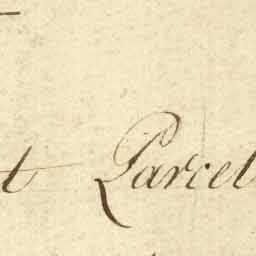 t Parcel